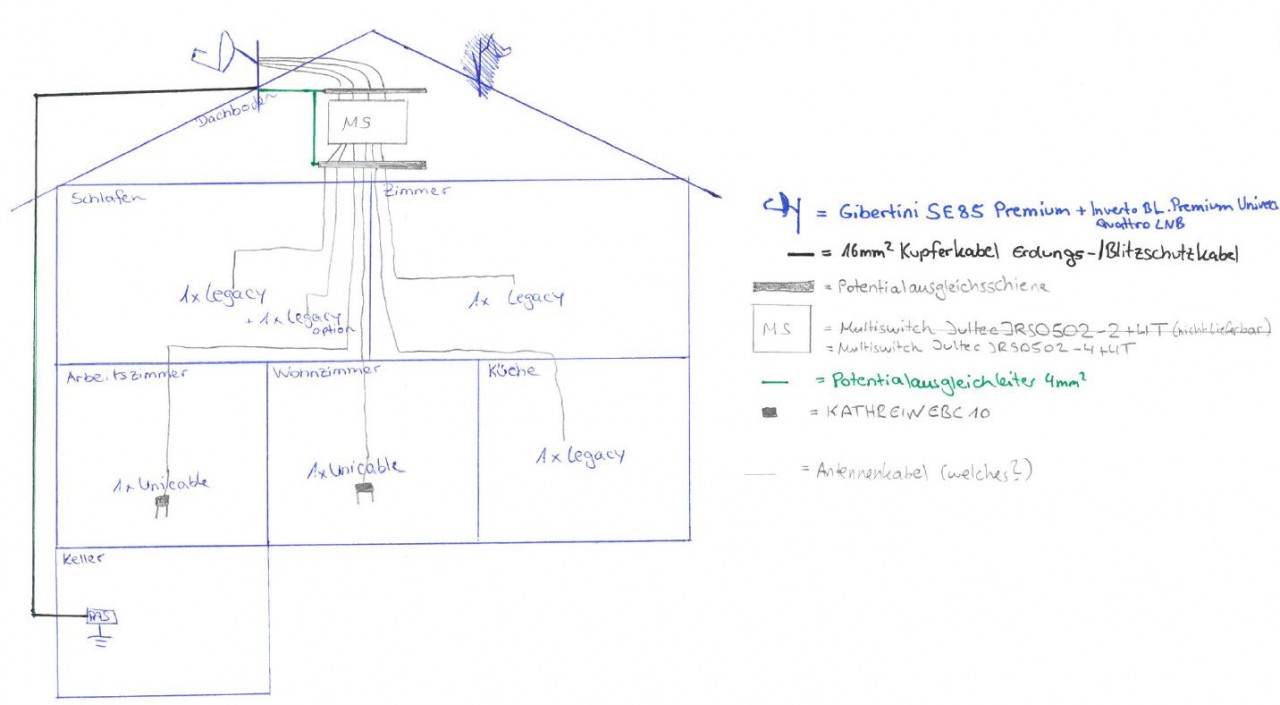 Dachboden
MS
Schlafen
Zimmer
1x Legacy
+ 1x Legacy
option
1x Legacy
Arbeitszimmer
Wohnzimmer
Küche
1x Unicable
1x Unicable
1x Legacy
Keller
PAS
= Gibertini SE85 Premium + Inverto BL. Premium Univers
Quattro LNB
= 16mm² Kupferkabel Erdungs-/Blitzschutzkabel
= Potentialausgleichsschiene
MS
= Multiswitch Jultec JRS0502-2+4T (nicht lieferbar)
= Multiswitch Jultec JRS0502-4+4T
= Potentialausgleichleiter 4mm²
= KATHREIN EBC 10
= Antennenkabel (welches?)